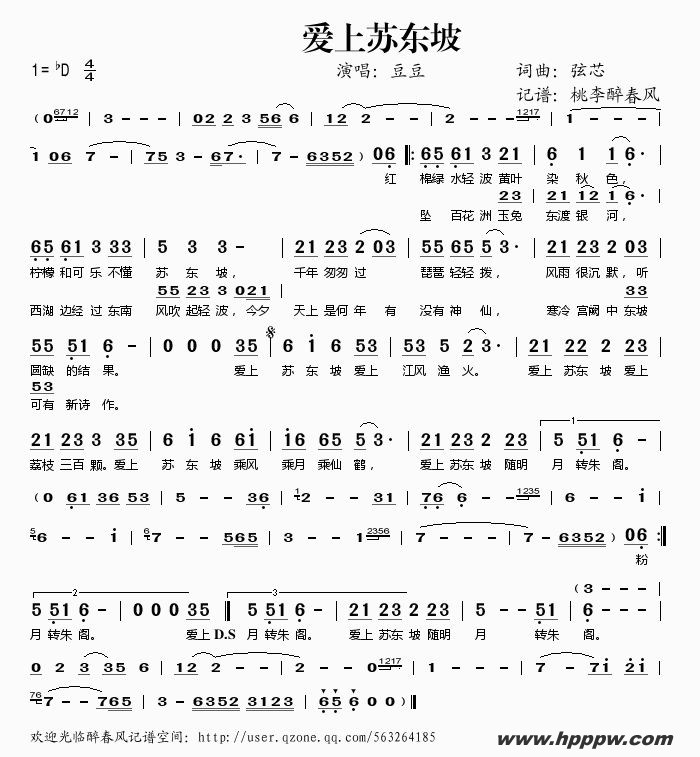 爱上苏东坡
1= ♭D 4/4 演唱: 豆豆 词曲: 弦芯
记谱: 桃李醉春风
(0 6712 | 3 - - - | 02 2 3 566 | 2 - - - | 2 - - 1217 | 1 - - -
1 06 7 - | 75 3 - 67· | 7 - 6352 ) 06 |: 65 61 3 21 | 6 1 1 6· |
红 棉绿 水轻 波 黄叶 染 秋 色,
23 | 21 12 1 6· |
坠 百花 洲 玉兔 东渡 银 河,
65 61 3 33 | 5 3 3 - | 21 23 2 03 | 55 65 5 3· | 21 23 2 03 |
柠檬 和可 乐 不懂 苏 东 坡, 千年 匆匆 过 琵琶 轻轻 拨, 风雨 很沉 默, 听
55 23 3 021 | 33
西湖 边经 过 东南 风吹 起轻 波, 今夕 天上 是何 年 有 没有 神 仙, 寒冷 宫阙 中 东坡
55 51 6 - | 0 0 0 35 | 6 1 6 53 | 53 5 2 3· | 21 22 2 23 |
圆缺 的结 果。 爱上 苏 东 坡 爱上 江风 渔 火。 爱上 苏东 坡 爱上
53
可有 新诗 作。
21 23 3 35 | 6 1 6 61 | 16 65 5 3· | 21 23 2 23 | 5 51 6 - |
1
荔枝 三百 颗。爱上 苏 东 坡 乘风 乘月 乘仙 鹤, 爱上 苏东 坡 随明 月 转朱 阁。
(0 61 36 53 | 5 - - 36 | 1 2 - - 31 | 76 6 - - 1235 | 6 - - 1 |
5 6 - - 1 | 6 7 - - 565 | 3 - - 1 2356 | 7 - - - | 7 - 6352 ) 06 :|
粉
2 3 (3 - - -
5 51 6 - | 0 0 0 35 ‖ 5 51 6 - | 21 23 2 23 | 5 - - 51 | 6 - - -
月 转朱 阁。 爱上 D.S 月 转朱 阁。 爱上 苏东 坡 随明 月 转朱 阁。
0 2 3 35 6 | 12 2 - - | 2 - - 0 1217 | 1 - - - | 7 - 71 21 |
76 7 - - 765 | 3 - 6352 3123 | 65 5 0 0 ‖
欢迎光临醉春风记谱空间: http://user.qzone.qq.com/563264185
www.hpppw.com